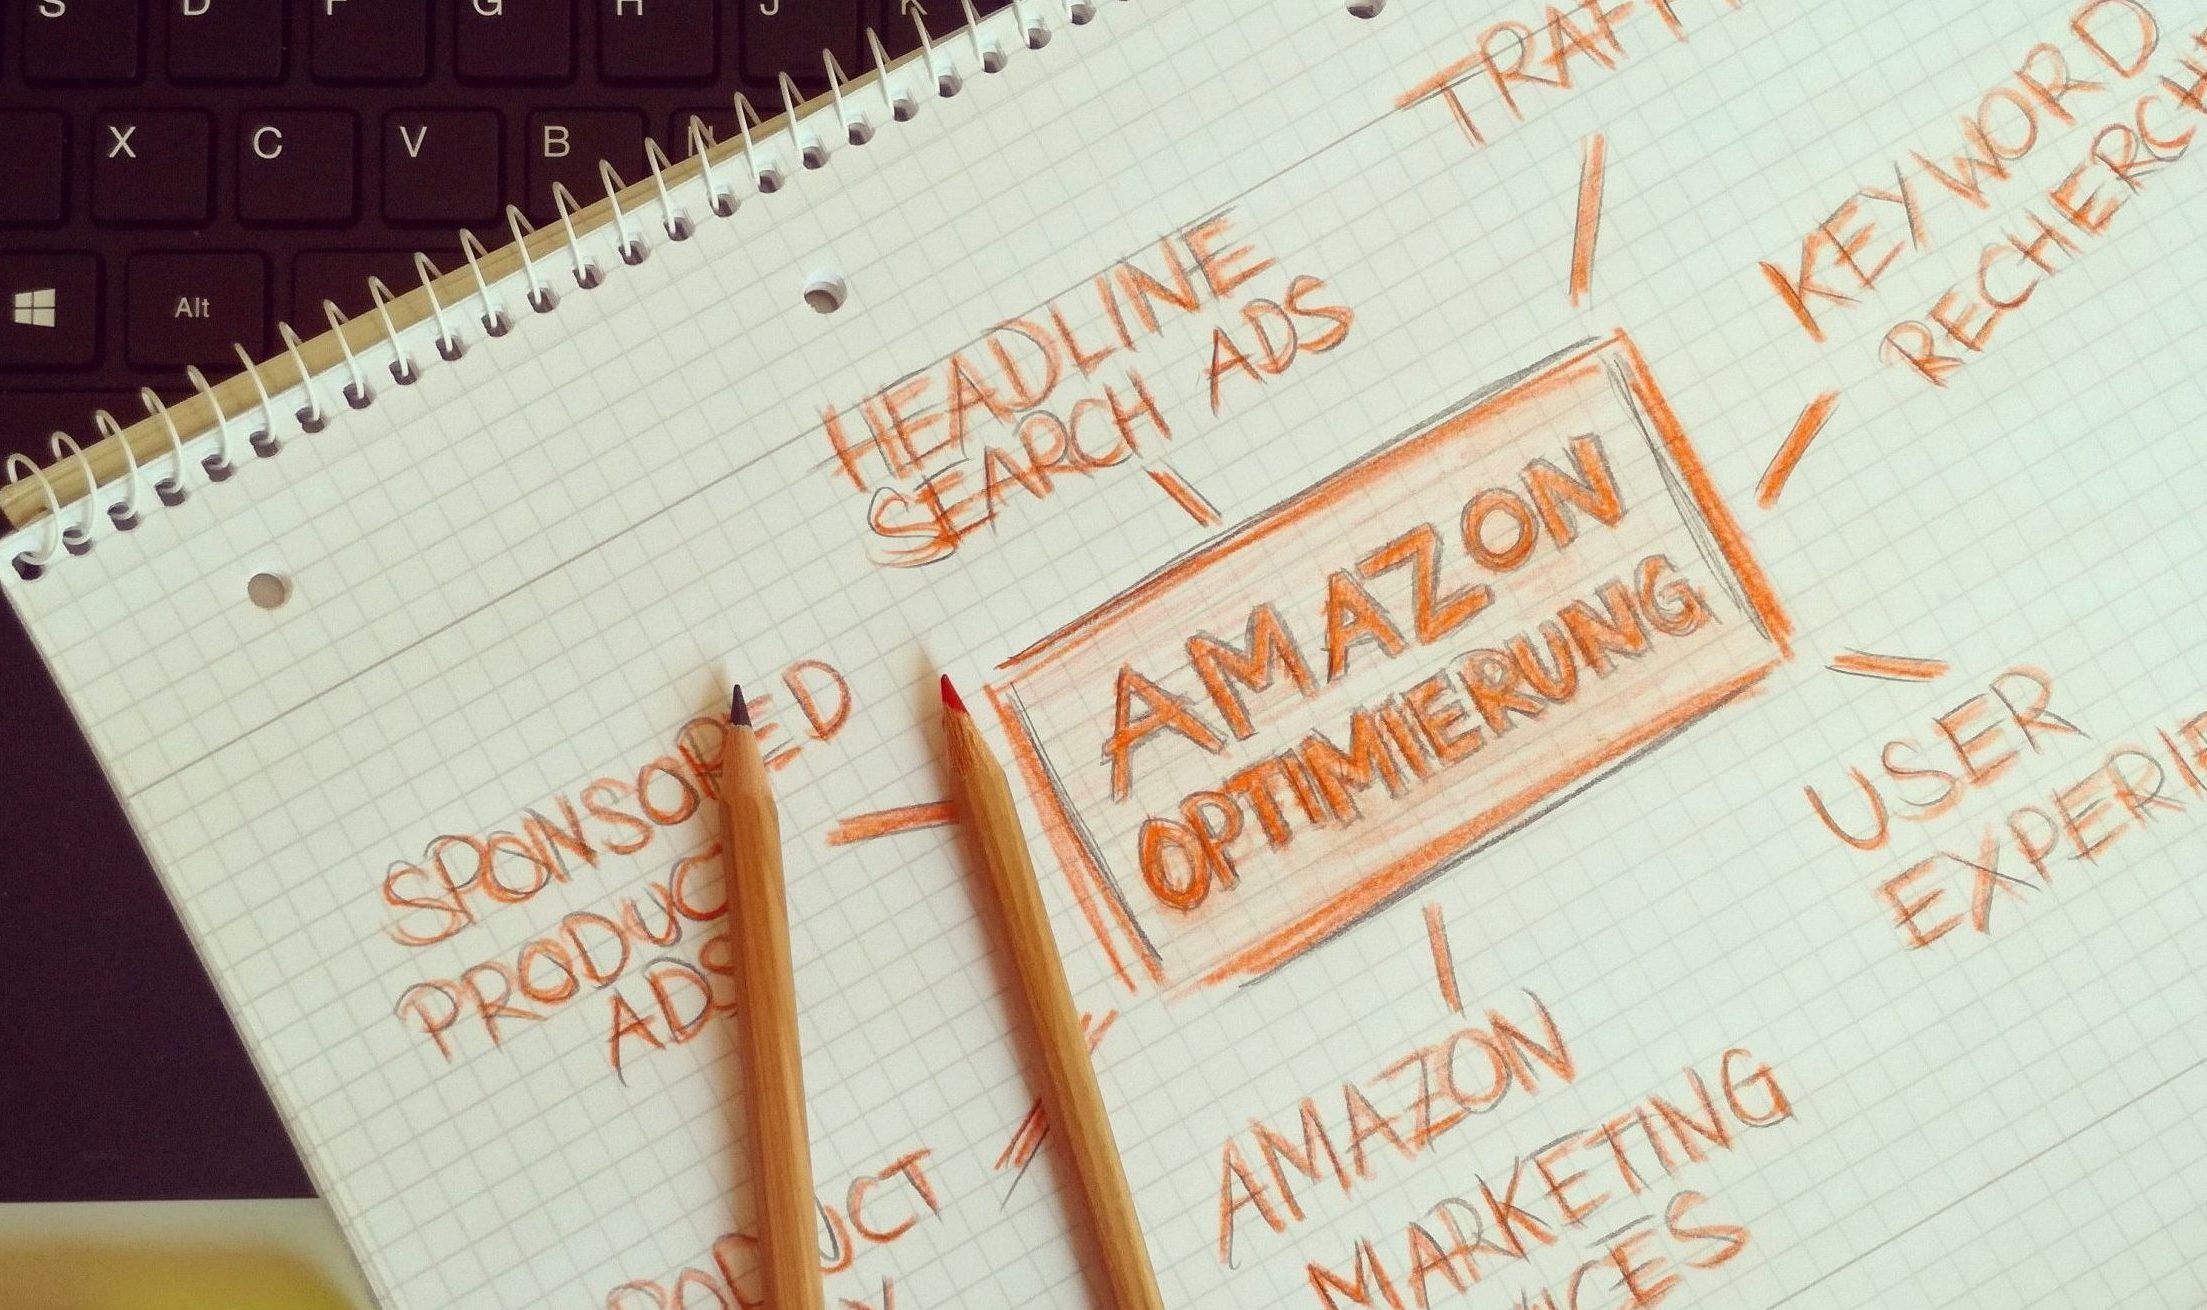 S D F G H J K
X C V B N
Alt
TRAFF
KEYWORD
RECHERCH
HEADLINE
SEARCH ADS
AMAZON
OPTIMIERUNG
USER
EXPERIE
SPONSORED
PRODUC
ADS
AMAZON
MARKETING
ICES
PRODUCT